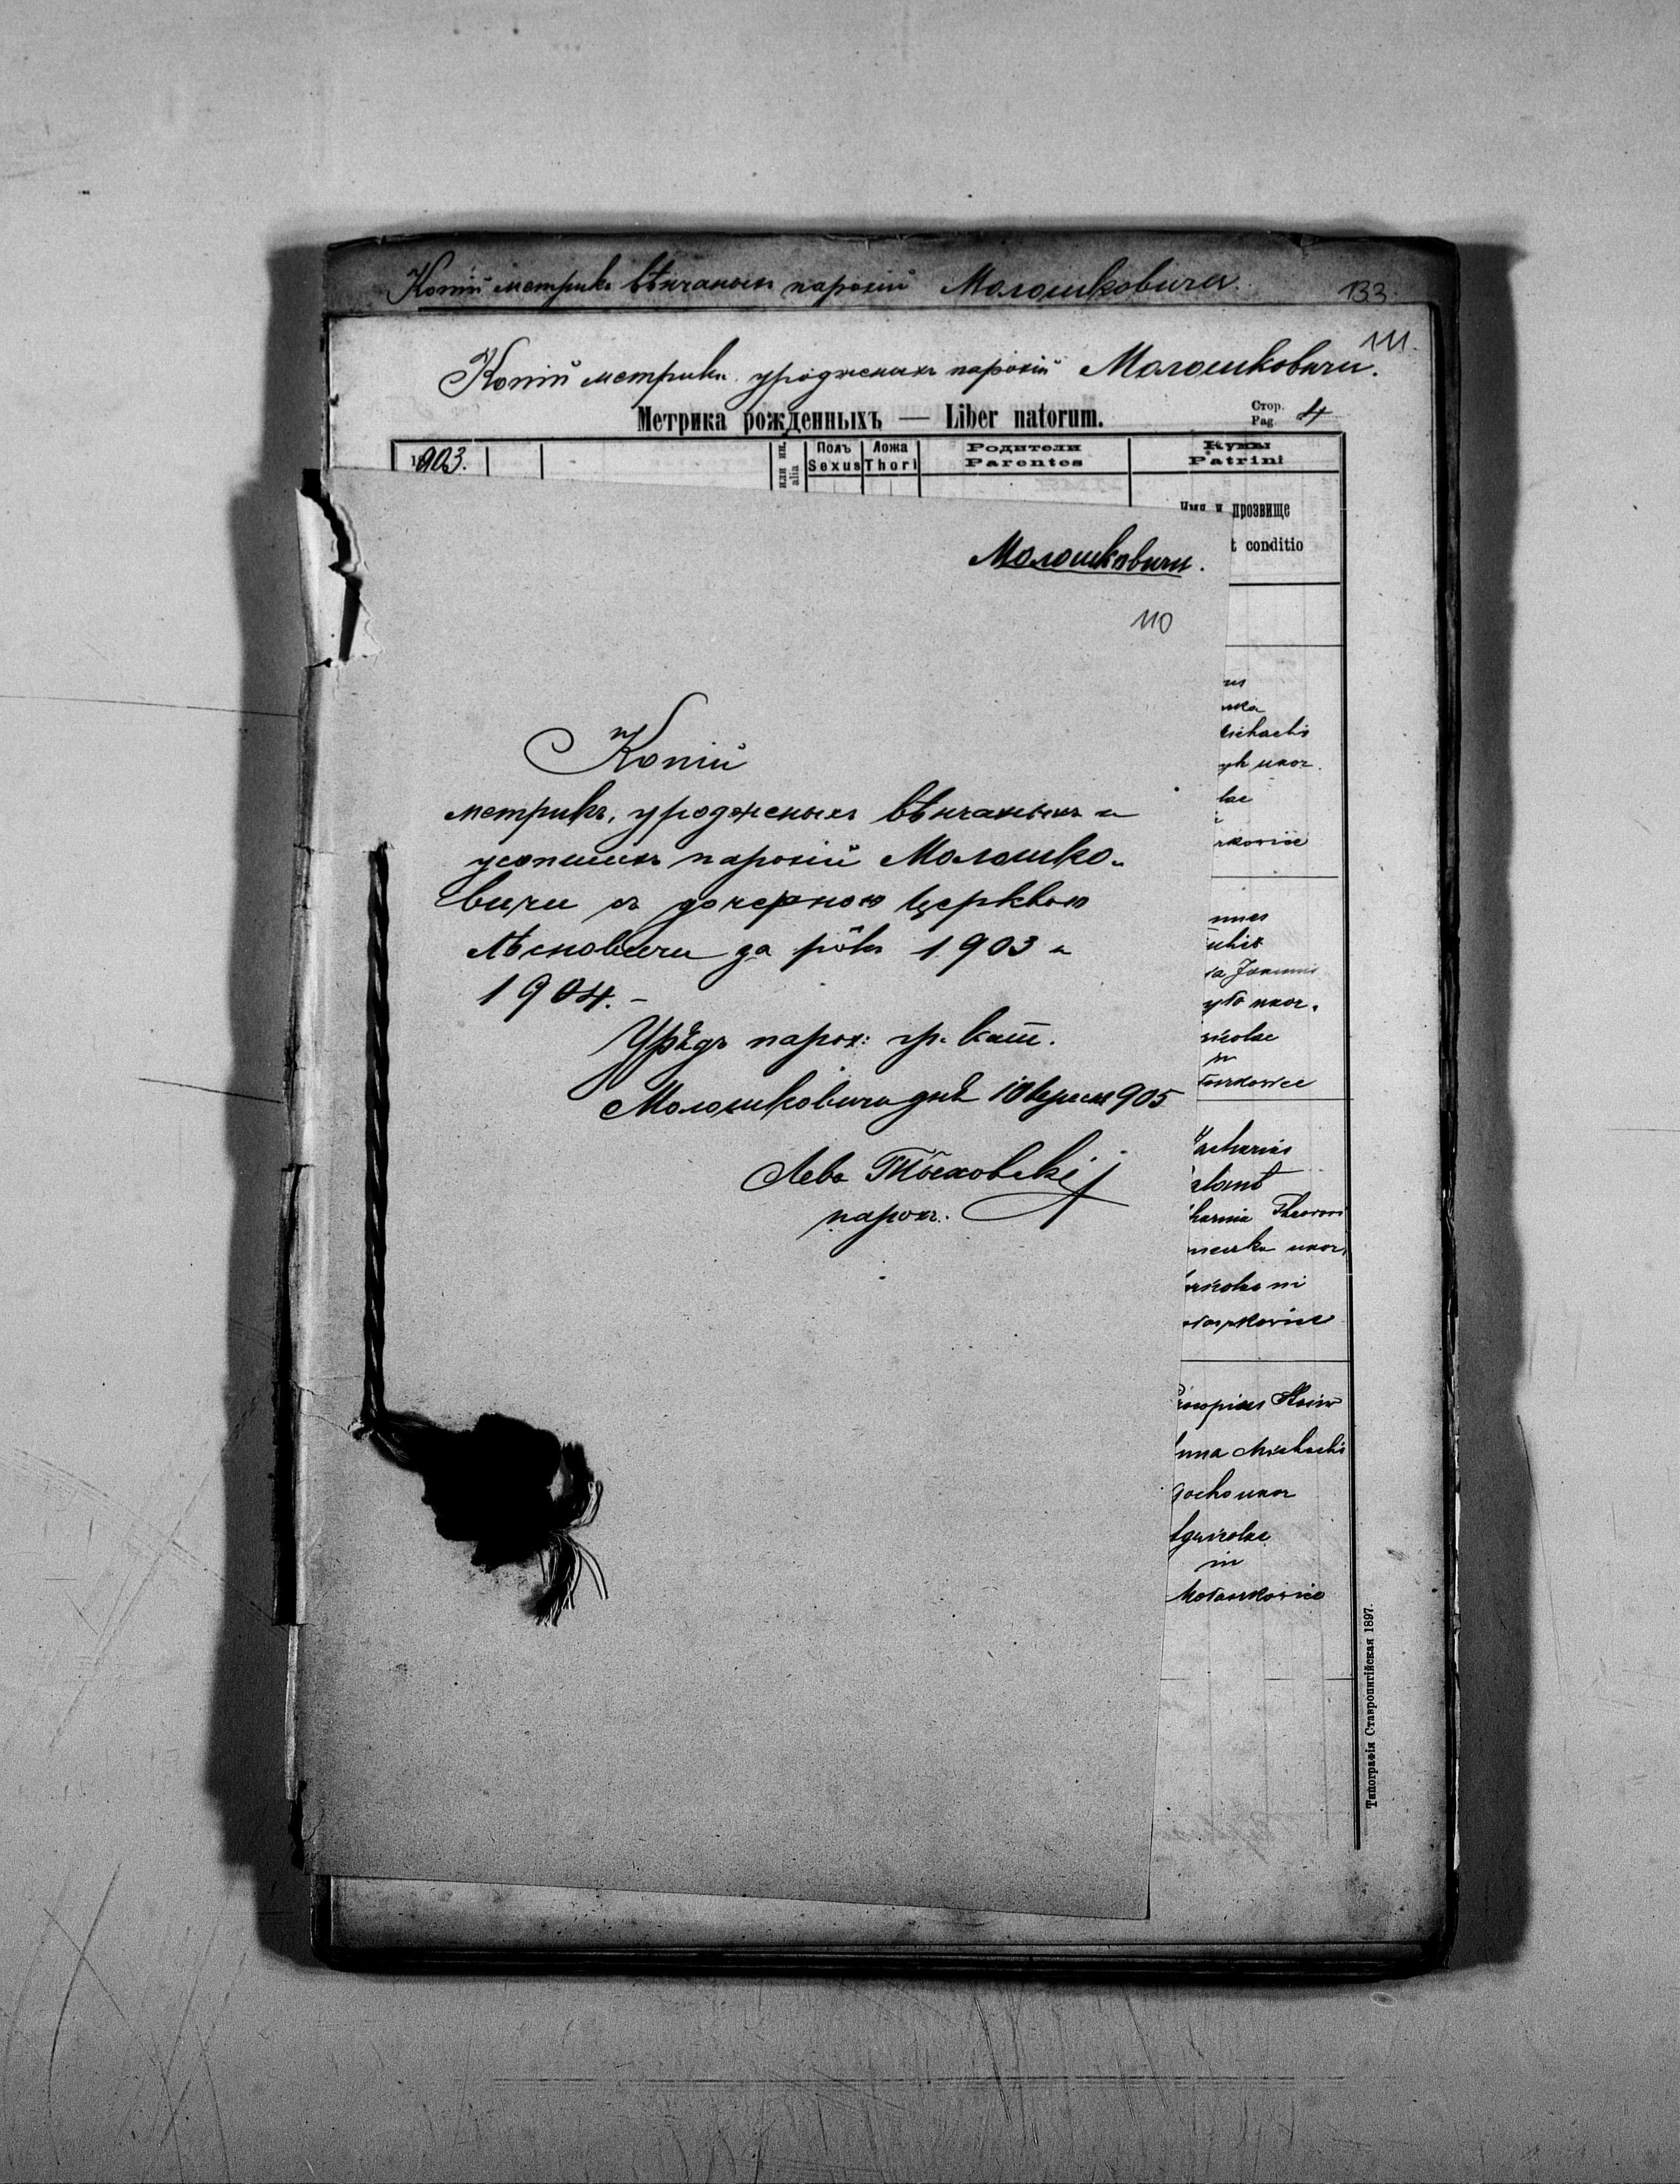 Копіи метрикъ вѣнчаныхъ парохіи Молошковичи.
133.
111.
Копіи метрикъ урожденыхъ парохіи Молошковичи.
Метрика рожденныхъ — Liber natorum.
Стор.
Pag. 4
1903.
или ин.
alia
Полъ
Sexus
Ложа
Thori
Родители
Parentes
Кумы
Patrini
Имя и прозвище
t conditio
Молошковичи.
110
Копіи
метрикъ, урожденыхъ вѣнчаныхъ и
усопшихъ парохіи Молошко-
вичи съ дочерною Церквою
Лѣсновичи за рôкъ 1903 и
1904.-
Урѣдъ парох: гр. кат.
Молошковичи днѣ 10 вересня 905
Левъ
парохъ.
ichaelis
yh uxor.
lae
rkowice
nnes
ia Joannis
yło uxor.
ricolae
in
acharias
Theodori
uxor
ricolae in
oszkowice
nna Michaelis
uxor
Agricolae
in
Mołoszkowice
Типографія Ставропигійская 1897.